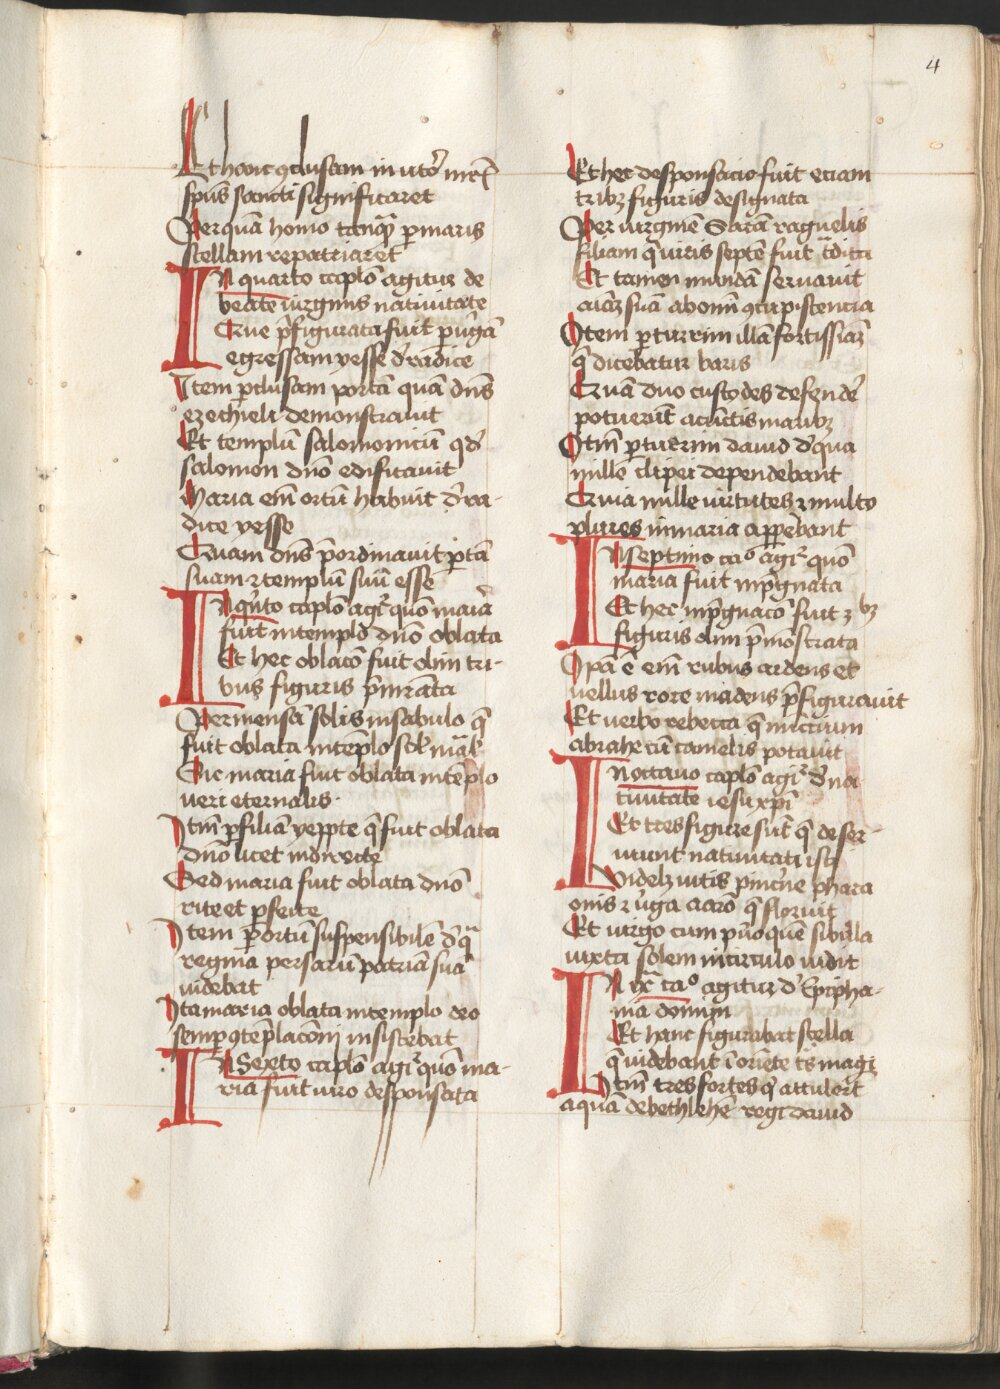 4
Et hanc ꝯclusam in utō mr̄e
spūs sancti significaret
Per quā homo tanqꝫ ꝑ maris
stellam repatriaret
In quarto caplō agitur de
beate uirginis natiuitate
Que p̄figurata fuit ꝑ uirgā
egressam yesse de radice
Item ꝑ clusam portā quā dn̄s
ezechieli demonstrauit
Et templū salomonicū qd̓
salomon dn̄o edificauit
Maria em̄ ortū habuit de ra-
dice yesse
Quam dn̄s p̄ordinauit portā
suam ⁊ templū suū esse
In qu̓nto caplō agit᷑ quō maria
fuit in templo dn̄o oblata
Et hec oblacō fuit olim tri-
bus figuris p̄mrāta
Per mensā solis in sabulo q̄
fuit oblata in tēplo sol̓ māl̓
Sic maria fuit oblata in tēplo
ueri eternalis
Itm̄ ꝑ filiam yeppte q̄ fuit oblata
dn̄o licet indirecte
Sed maria fuit oblata dn̄o
rite et ꝑfecte
Item ꝑ ortū suspensibilē d̓ qͣ
regina persarū patriam suā
uidebat
Ita maria oblata in templo deo
semꝑ ꝯtēplacōni insistebat
In Sexto caplō agit᷑ quō ma-
ria fuit uiro desponsata
Et hec desponsacio fuit eciam
tribꝫ figuris designata
Per uirginē Saram raguelis
filiam q̄ uiris septē fuit tͣdita
Et tamen mūdā seruauit
aīaꝫ suā ab om̄i ꝯcupiscencia
Item ꝑ turrim illā fortissimā
q̄ dicebatur baris
Quā duo custodes defendē
potuerūt a cūctis maribꝫ
Itm̄ ꝑ turrim dauid d̓ qua
mille clipei dependebant
Quia mille uirtutes ⁊ multo
plures in maria apparebant
In septimo caº agit᷑ quō
maria fuit imp̄gnata
Et hec imp̄gnacō fuit 3 bꝫ
figuris olim p̄mōstrata
Ipā ē em̄ rubus ardens et
uellus rore madens p̄figurauit
Et uerbo rebecca q̄ nunctium
abrahe cū camelis potauit
In octauo caplō agit᷑ d̓ na-
tiuitate iesu xp̄i
Et tres figure sūt q̄ deser-
uiunt natiuitati isti
Videlꝫ uitis pincrne phara
onis ⁊ u̓ga aarō q̄ floruit
Et uirgo cum pūo quē sibilla
iuxta solem in circulo uidit
In ix caº agitur d̓ Epipha-
nia domini
Et hanc figurabat stella
q̄ uidebant ī oriēte t̄s magi
Itm̄ tres fortes q̄ attulert̄
aquā de bethlehē regi dauid